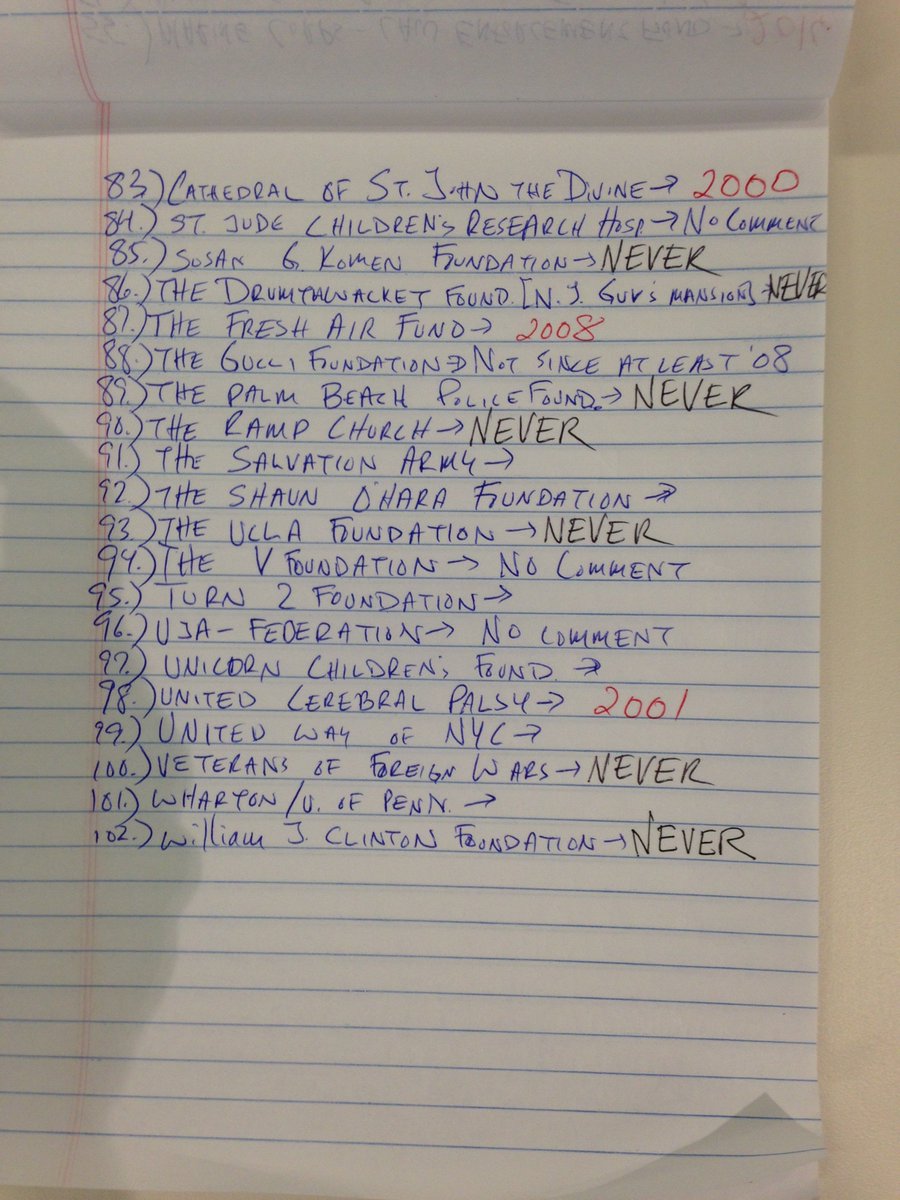 83.) CATHEDRAL OF ST. JOHN THE DIVINE → 2000
84.) ST. JUDE CHILDREN'S RESEARCH HOSP → NO COMMENT
85.) SUSAN G. KOMEN FOUNDATION → NEVER
86.) THE DRUMTHWACKET FOUND. [N.J. GUV'S MANSION] → NEVER
87.) THE FRESH AIR FUND → 2008
88.) THE GUCCI FOUNDATION → NOT SINCE AT LEAST '08
89.) THE PALM BEACH POLICE FOUND. → NEVER
90.) THE RAMP CHURCH → NEVER
91.) THE SALVATION ARMY →
92.) THE SHAUN O'HARA FOUNDATION →
93.) THE UCLA FOUNDATION → NEVER
94.) THE V FOUNDATION → NO COMMENT
95.) TURN 2 FOUNDATION →
96.) UJA - FEDERATION → NO COMMENT
97.) UNICORN CHILDREN'S FOUND. →
98.) UNITED CEREBRAL PALSY → 2001
99.) UNITED WAY OF NYC →
100.) VETERANS OF FOREIGN WARS → NEVER
101.) WHARTON / U. OF PENN. →
102.) William J. CLINTON FOUNDATION → NEVER